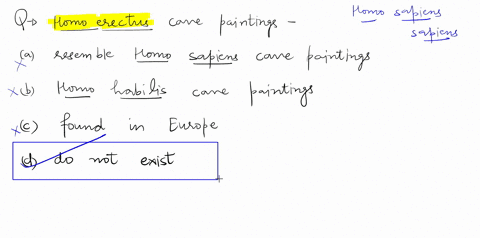 Q→ Homo erectus cave paintings –
Homo sapiens
sapiens
(a) resemble Homo sapiens cave paintings
(b) Homo habilis cave paintings
(c) found in Europe
(d) do not exist